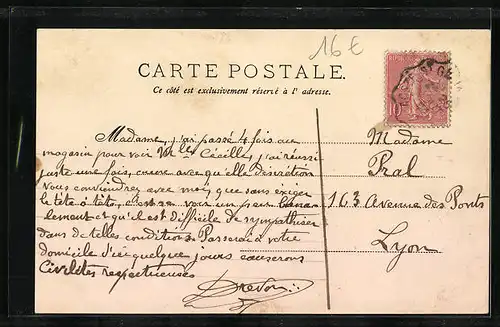 16 €
CARTE POSTALE.
Ce côté est exclusivement réservé à l'adresse.
Madame, j'ai passé 4 fois au
magasin pour voir Mlle Cécille, j'ai réussi
juste une fois, encore avec quelle discrétion
Vous conviendrez avec moi, que sans exiger
le tete à tête, c'est se voir un peu banal
lement et qu'il est difficile de sympathiser
dans de telles conditions. Passerai à votre
domicile d'ici quelque jours causerons
Civilités respectueuses
Drevon
Madame
Pral
163 Avenue des Ponts
Lyon